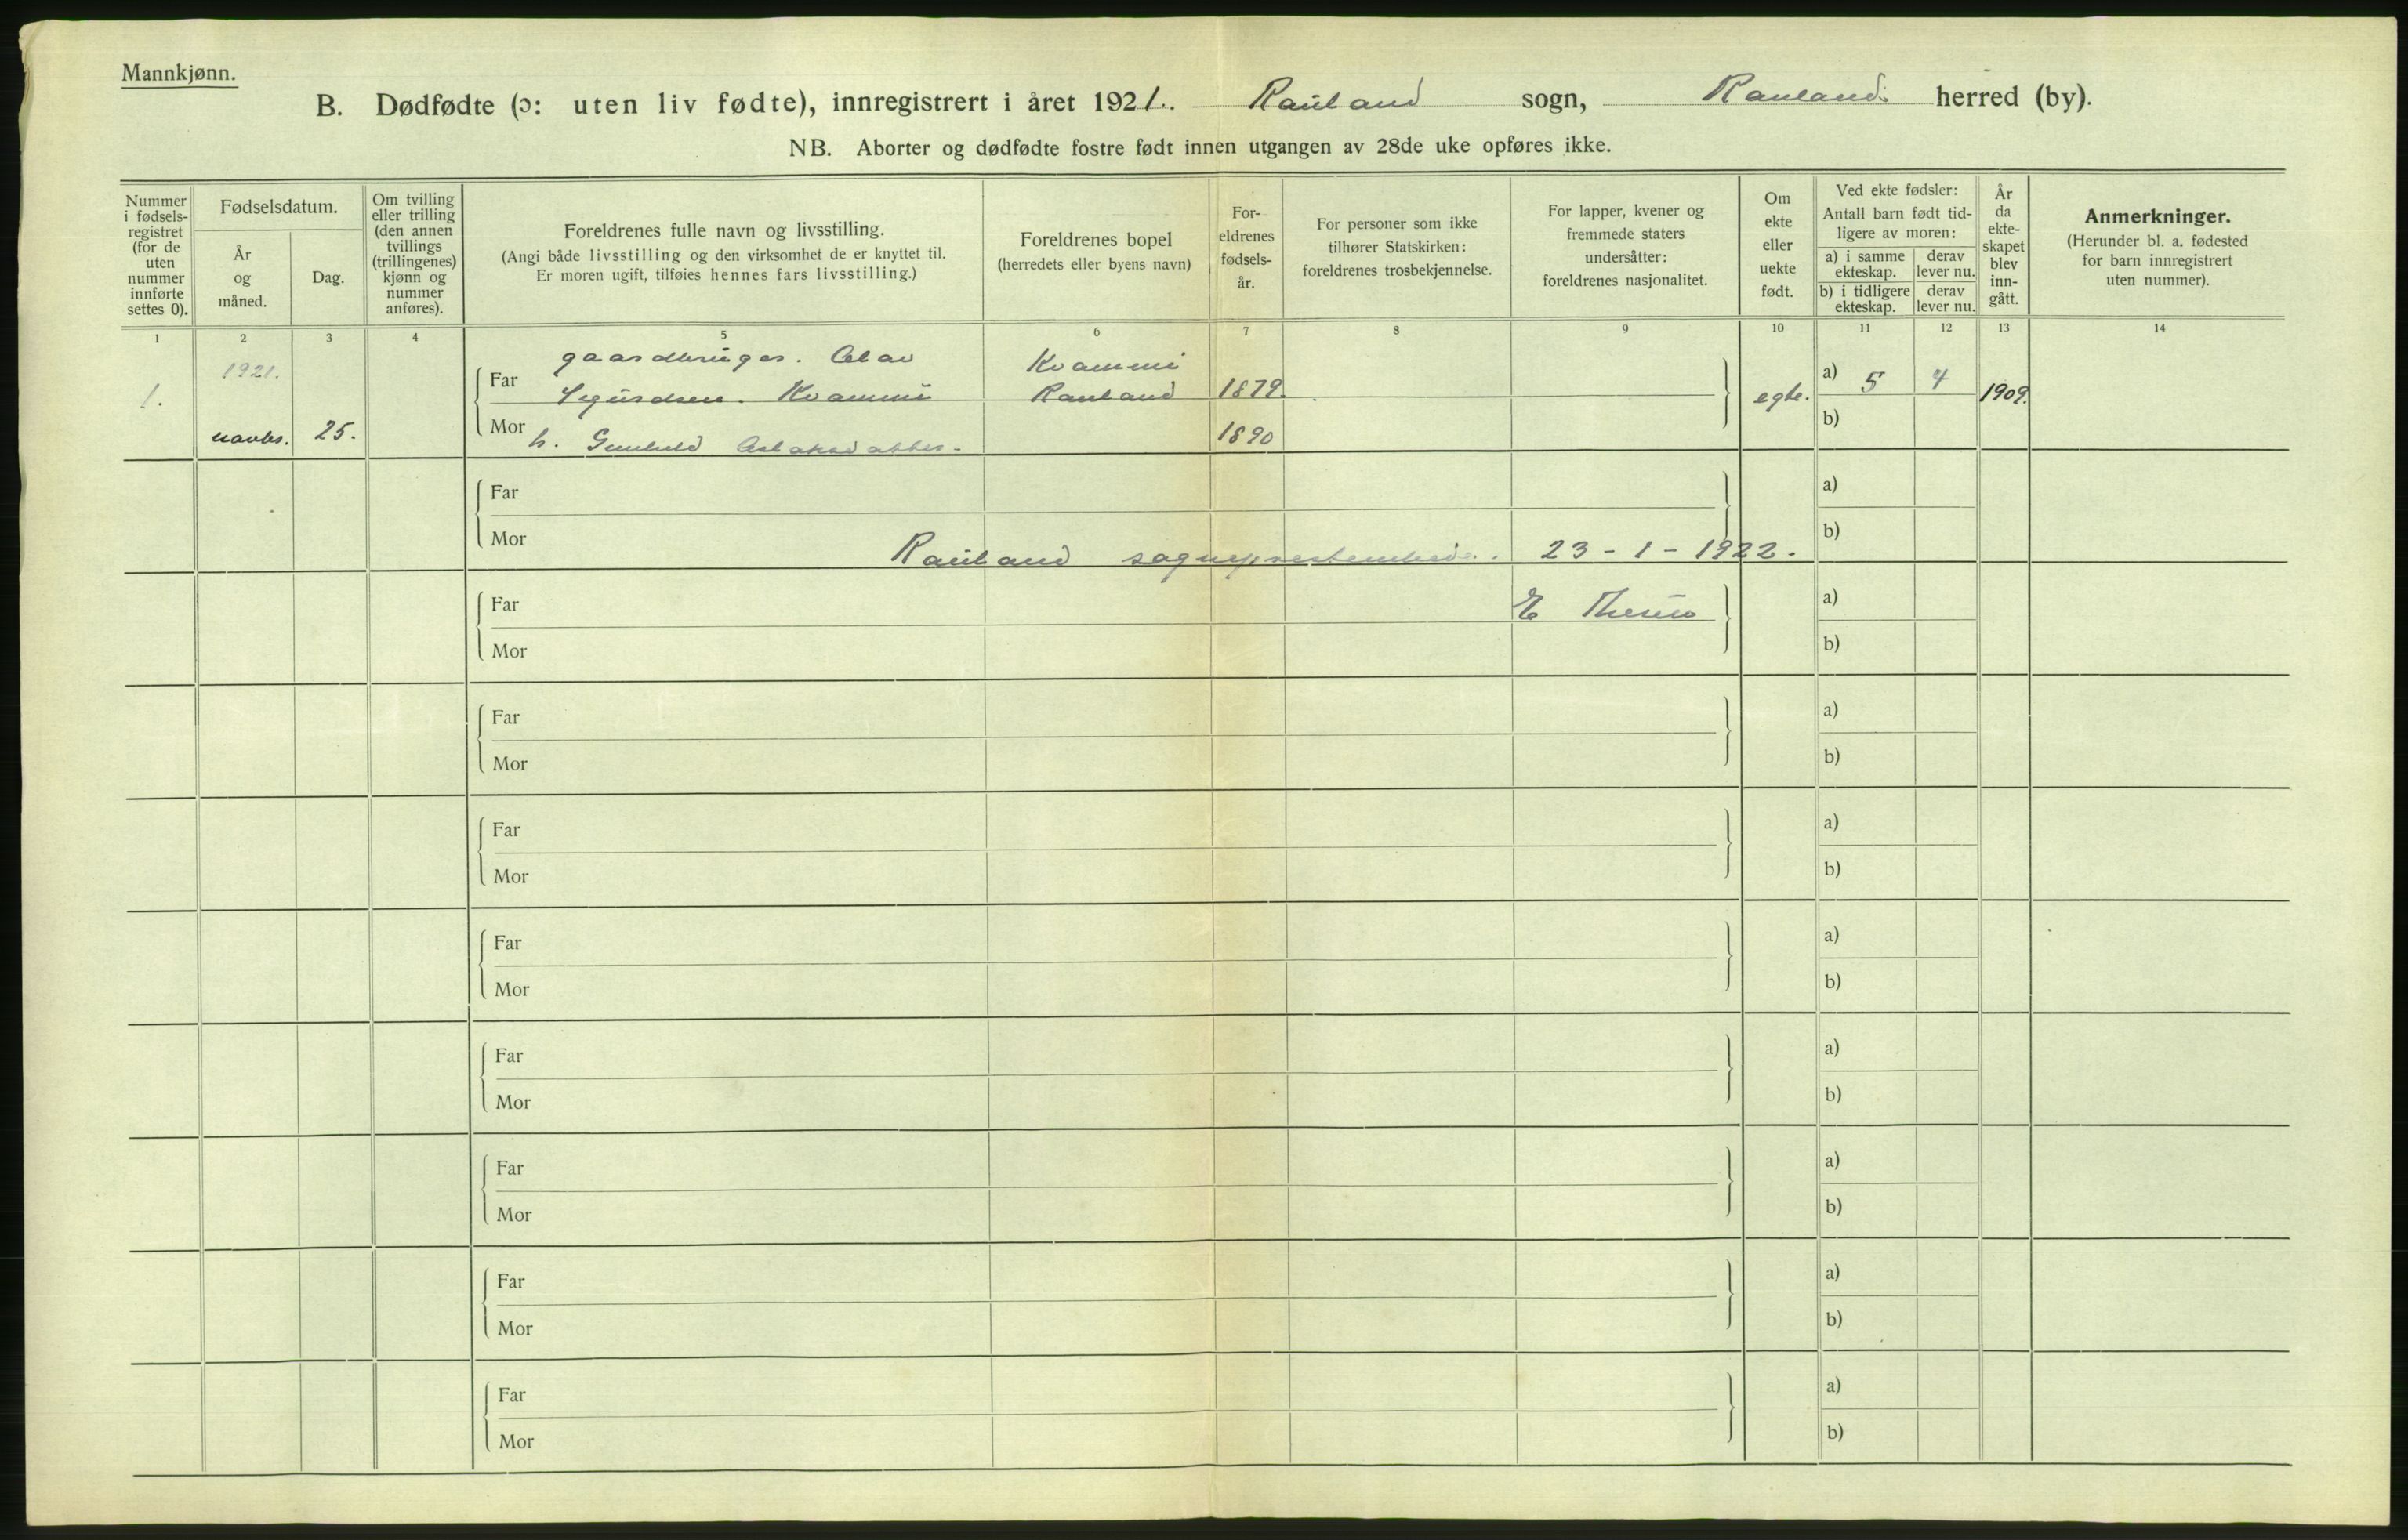 Mannkjønn.
B. Dødfødte (ɔ: uten liv fødte), innregistrert i året 1921. Rauland sogn, Raulands herred (by).
NB. Aborter og dødfødte fostre født innen utgangen av 28de uke opføres ikke.
Nummer
i fødsels-
registret
(for de
uten
nummer
innførte
settes 0).
Fødselsdatum.
År
og
måned.
Dag.
Om tvilling
eller trilling
(den annen
tvillings
(trillingenes)
kjønn og
nummer
anføres).
Foreldrenes fulle navn og livsstilling.
(Angi både livsstilling og den virksomhet de er knyttet til.
Er moren ugift, tilføies hennes fars livsstilling.)
Foreldrenes bopel
(herredets eller byens navn)
For-
eldrenes
fødsels-
år.
For personer som ikke
tilhører Statskirken:
foreldrenes trosbekjennelse.
For lapper, kvener og
fremmede staters
undersåtter:
foreldrenes nasjonalitet.
Om
ekte
eller
uekte
født.
Ved ekte fødsler:
Antall barn født tid-
ligere av moren:
a) i samme
ekteskap.
derav
lever nu.
b) i tidligere
ekteskap.
derav
lever nu.
År
da
ekte-
skapet
blev
inn-
gått.
Anmerkninger.
(Herunder bl. a. fødested
for barn innregistrert
uten nummer).
1 2 3 4 5 6 7 8 9 10 11 12 13 14
1921. gaardbruger. Olav Kvammi
1. Far Sigurdsen. Kvammi Rauland 1879. egte. a) 5 4 1909.
novbr. 25. Mor h. Gunhild Aslaksdatter. 1890 b)
Far a)
Mor b)
Rauland sogneprestembede. 23-1-1922.
Far E a)
Mor b)
Far a)
Mor b)
Far a)
Mor b)
Far a)
Mor b)
Far a)
Mor b)
Far a)
Mor b)
Far a)
Mor b)
Far a)
Mor b)